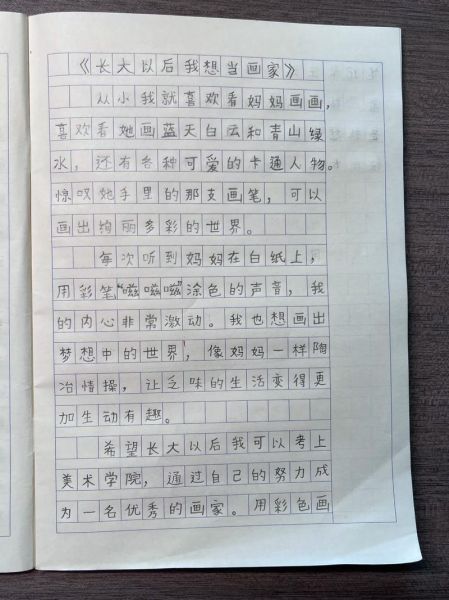 《长大以后我想当画家》
从小我就喜欢看妈妈画画，
喜欢看她画蓝天白云和青山绿
水，还有各种可爱的卡通人物。
惊叹她手里的那支画笔，可以
画出绚丽多彩的世界。
每次听到妈妈在白纸上，
用彩笔“嗞嗞嗞”涂色的声音，我
的内心非常激动。我也想画出
梦想中的世界，像妈妈一样陶
冶情操，让乏味的生活变得更
加生动有趣。
希望长大以后我可以考上
美术学院，通过自己的努力成
为一名优秀的画家。用彩色画